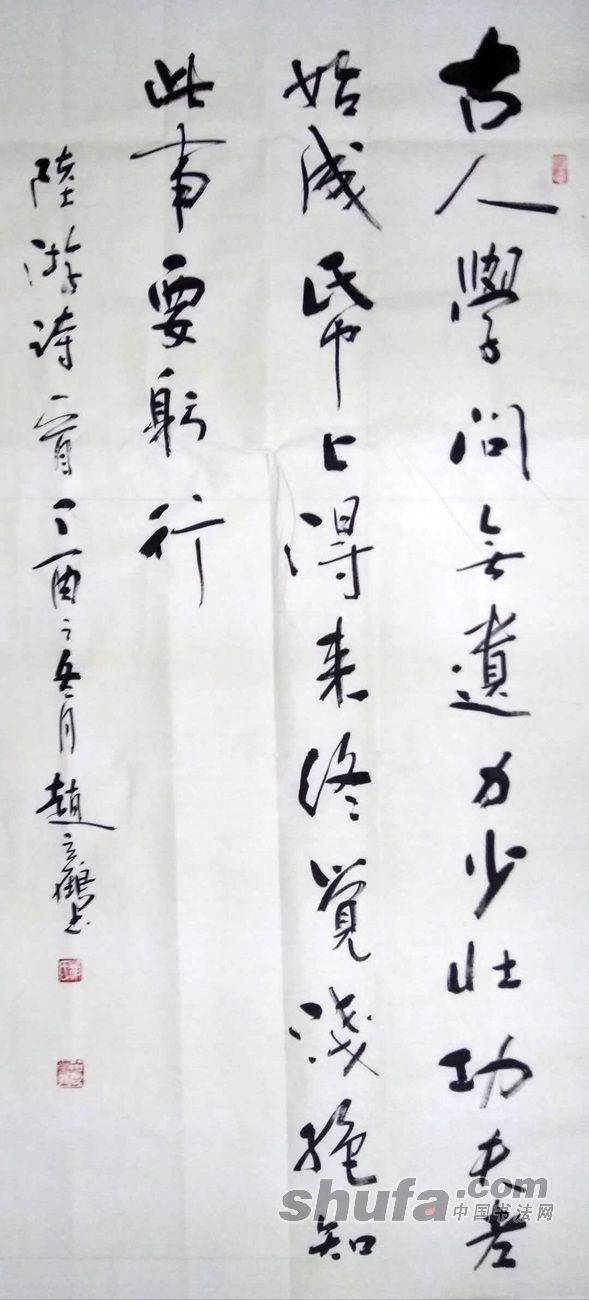 古人學問無遺力少壯功夫老
始成帋上得来终覺淺絶知
此事要躬行
陸游诗一首丁酉之冬月趙鶴书
shufa.com
中国书法网